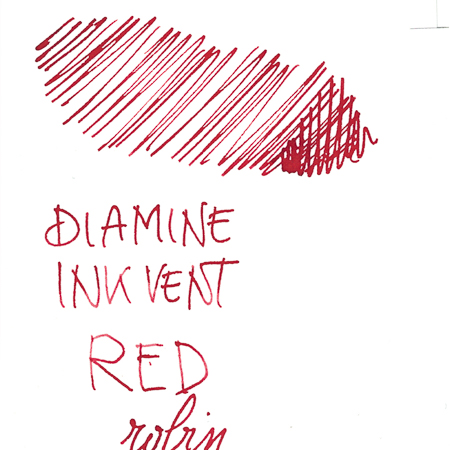 DIAMINE
INKVENT
RED
robin